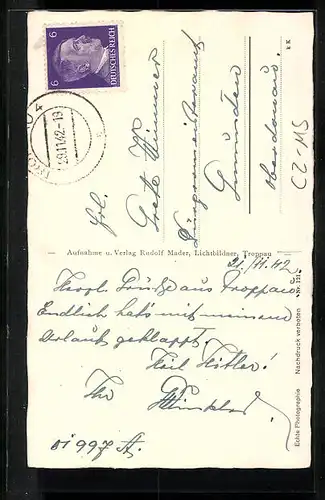 6 DEUTSCHES REICH 6
29.11.42-19
Frl.
Grete Wimmer
Bürgermeisteramt
Gmunden
Oberdonau.
CZ-115
k K
Aufnahme u. Verlag Rudolf Mader, Lichtbildner, Troppau
Echte Photographie Nachdruck verboten Nr. 121
/11.42
Herzl. Grüße aus Troppau.
Endlich hat's mit meinem
Urlaub geklappt.
Heil Hitler!
Ihr Winkler
997 A.